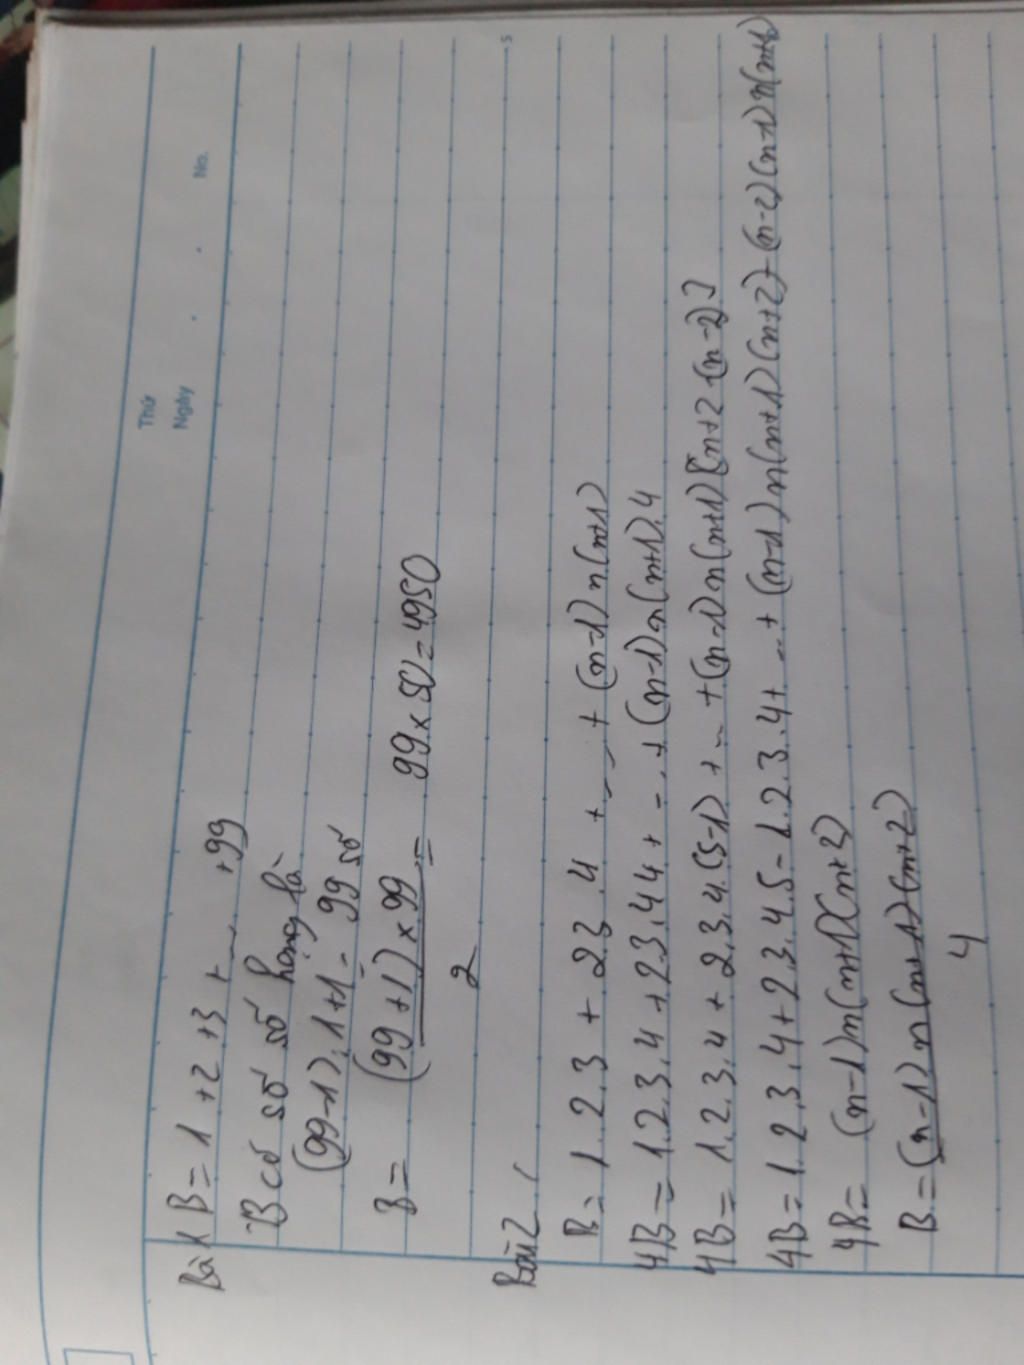 Thứ
Ngày . . No.
Bài 1 B = 1 + 2 + 3 + ... + 99
B có số số hạng là
(99-1):1+1 = 99 số
B = (99+1) x 99 / 2 = 99 x 50 = 4950
Bài 2
B = 1.2.3 + 2.3.4 + ... + (n-1)n(n+1)
4B = 1.2.3.4 + 2.3.4.4 + ... + (n-1)n(n+1).4
4B = 1.2.3.4 + 2.3.4.(5-1) + ... + (n-1)n(n+1)[n+2-(n-2)]
4B = 1.2.3.4 + 2.3.4.5 - 1.2.3.4 + ... + (n-1)n(n+1)(n+2) - (n-2)(n-1)n(n+1)
4B = (n-1)n(n+1)(n+2)
B = (n-1)n(n+1)(n+2) / 4